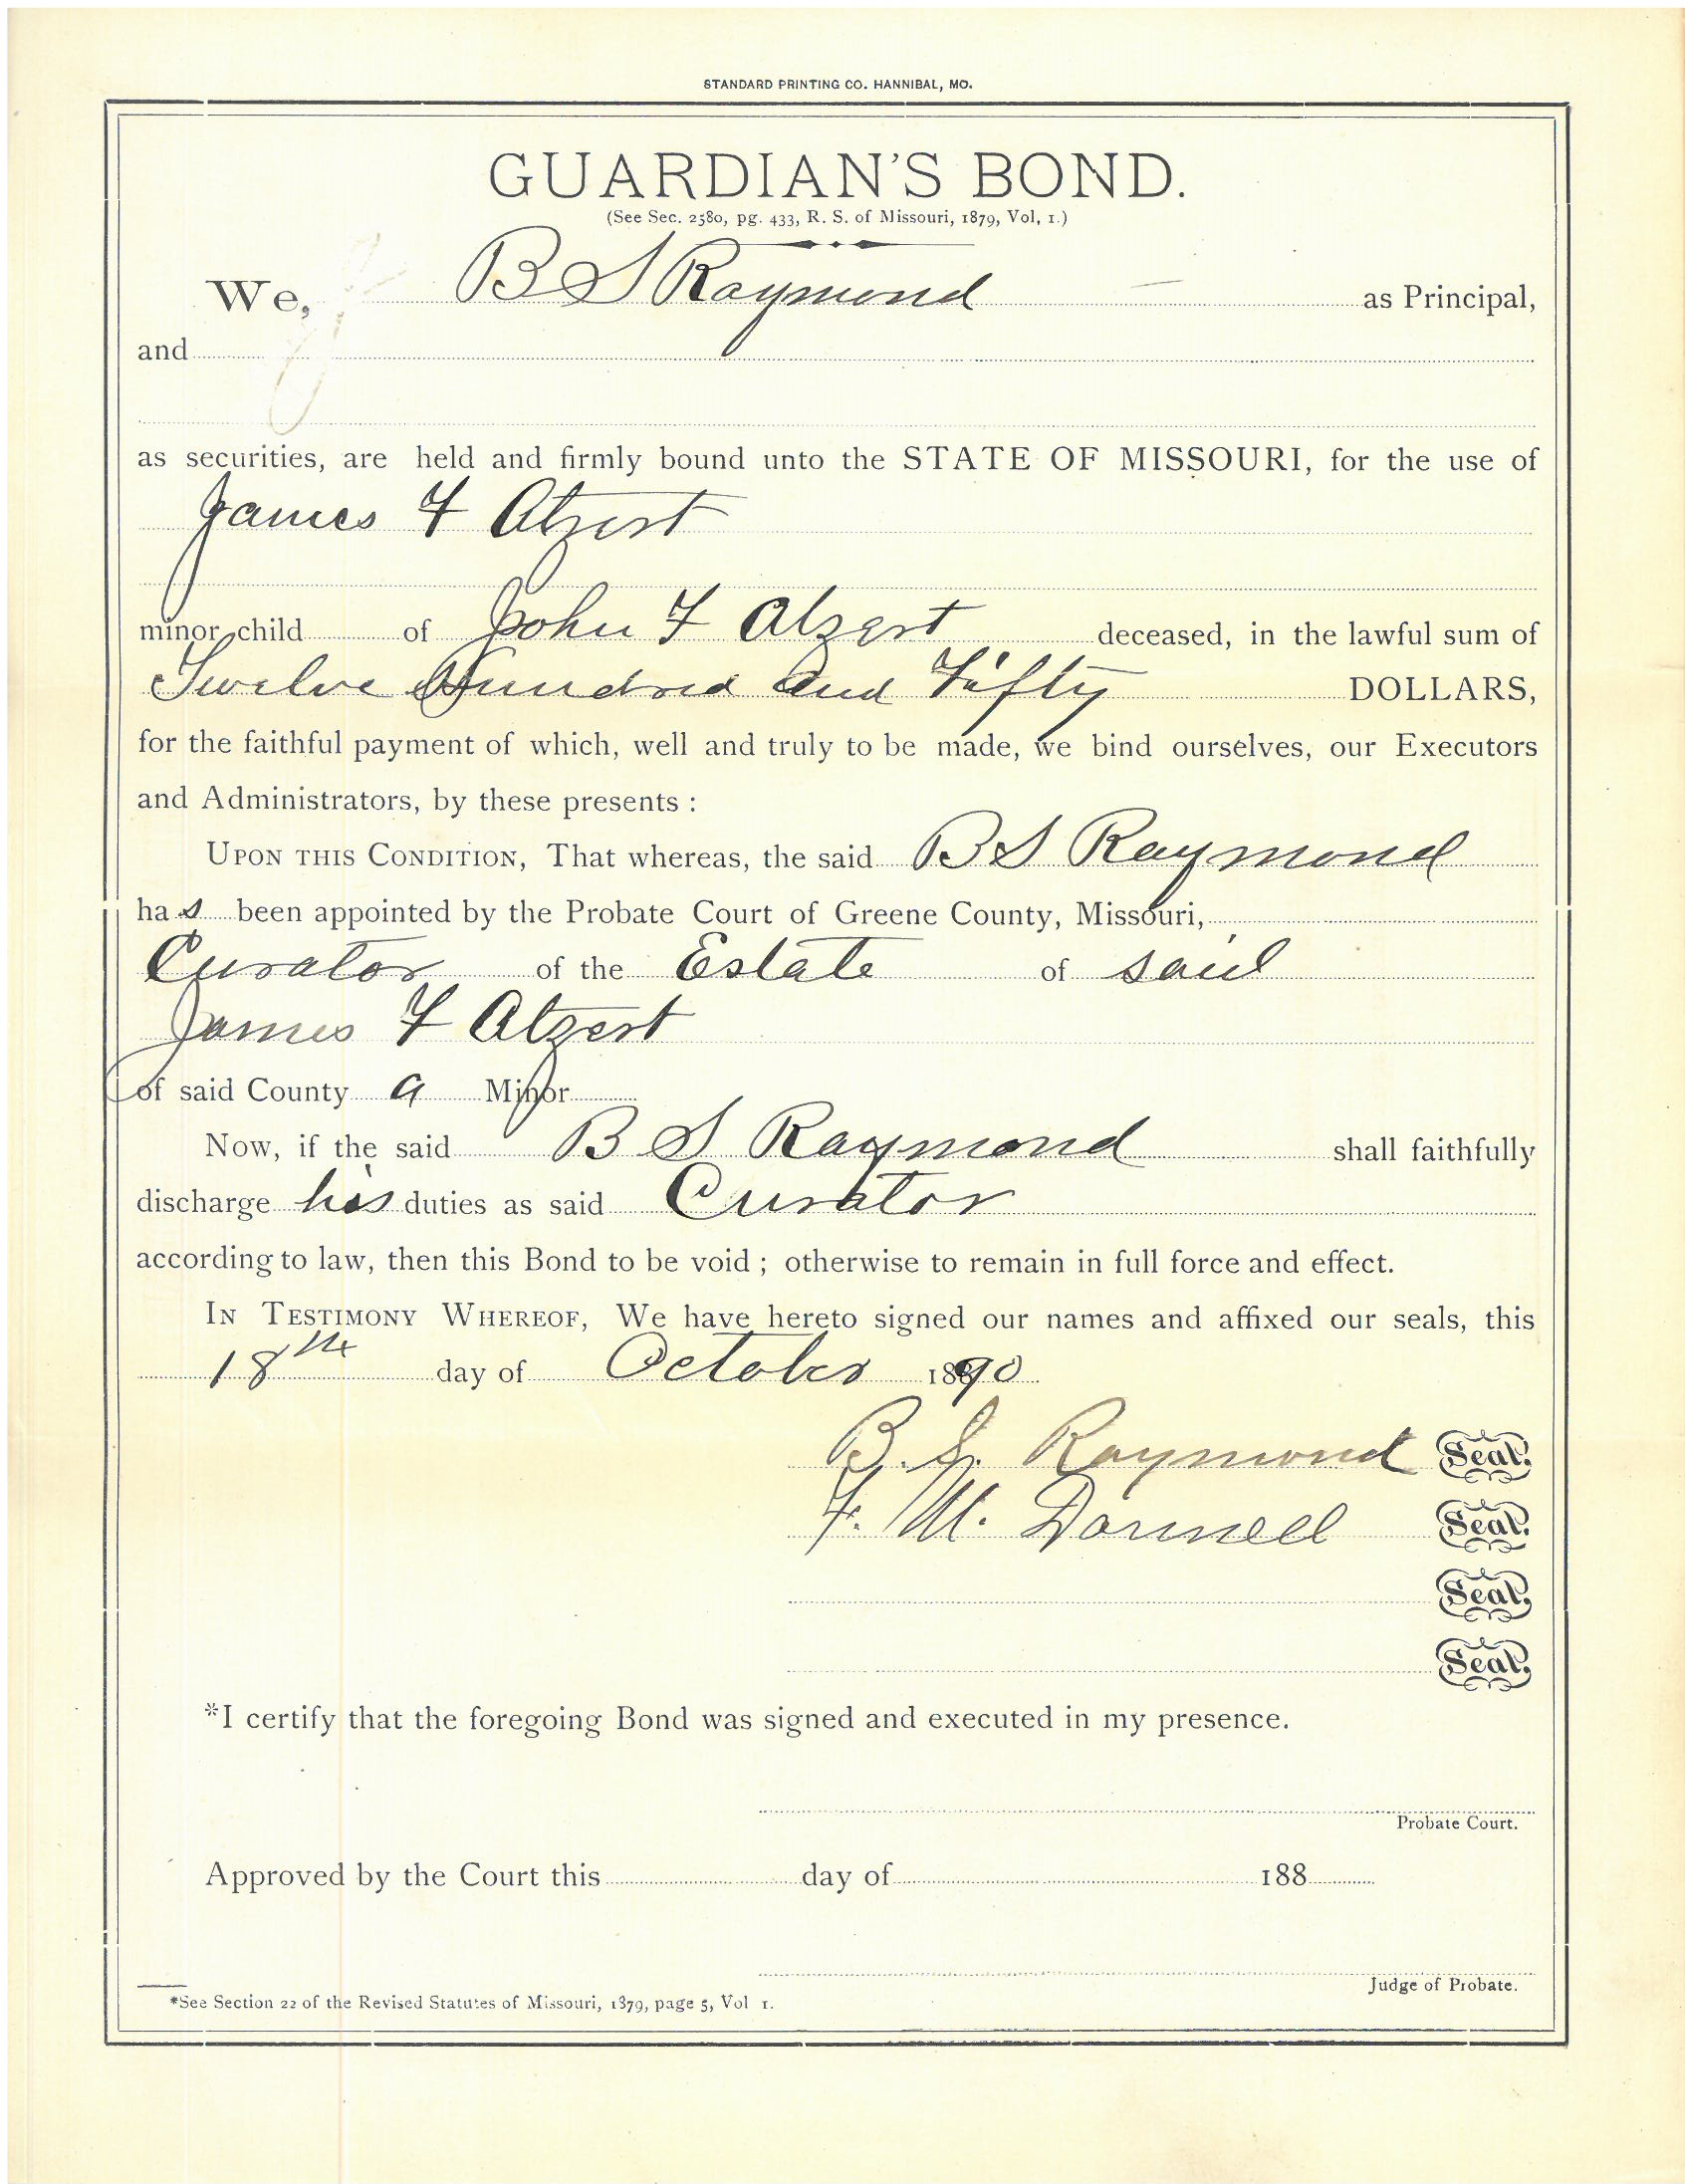 STANDARD PRINTING CO. HANNIBAL, MO.
GUARDIAN'S BOND.
(See Sec. 2580, pg. 433, R. S. of Missouri, 1879, Vol, 1.)
We, B S Raymond as Principal,
and
as securities, are held and firmly bound unto the STATE OF MISSOURI, for the use of
James F Atzert
minor child of John F Atzert deceased, in the lawful sum of
Twelve Hundred and Fifty DOLLARS,
for the faithful payment of which, well and truly to be made, we bind ourselves, our Executors
and Administrators, by these presents :
UPON THIS CONDITION, That whereas, the said B S Raymond
has been appointed by the Probate Court of Greene County, Missouri,
Curator of the Estate of said
James F Atzert
of said County a Minor
Now, if the said B S Raymond shall faithfully
discharge his duties as said Curator
according to law, then this Bond to be void ; otherwise to remain in full force and effect.
IN TESTIMONY WHEREOF, We have hereto signed our names and affixed our seals, this
18th day of October 1890
B. S. Raymond Seal.
F. M. Donnell Seal.
Seal.
Seal.
*I certify that the foregoing Bond was signed and executed in my presence.
Probate Court.
Approved by the Court this day of 188
Judge of Probate.
*See Section 22 of the Revised Statutes of Missouri, 1879, page 5, Vol 1.